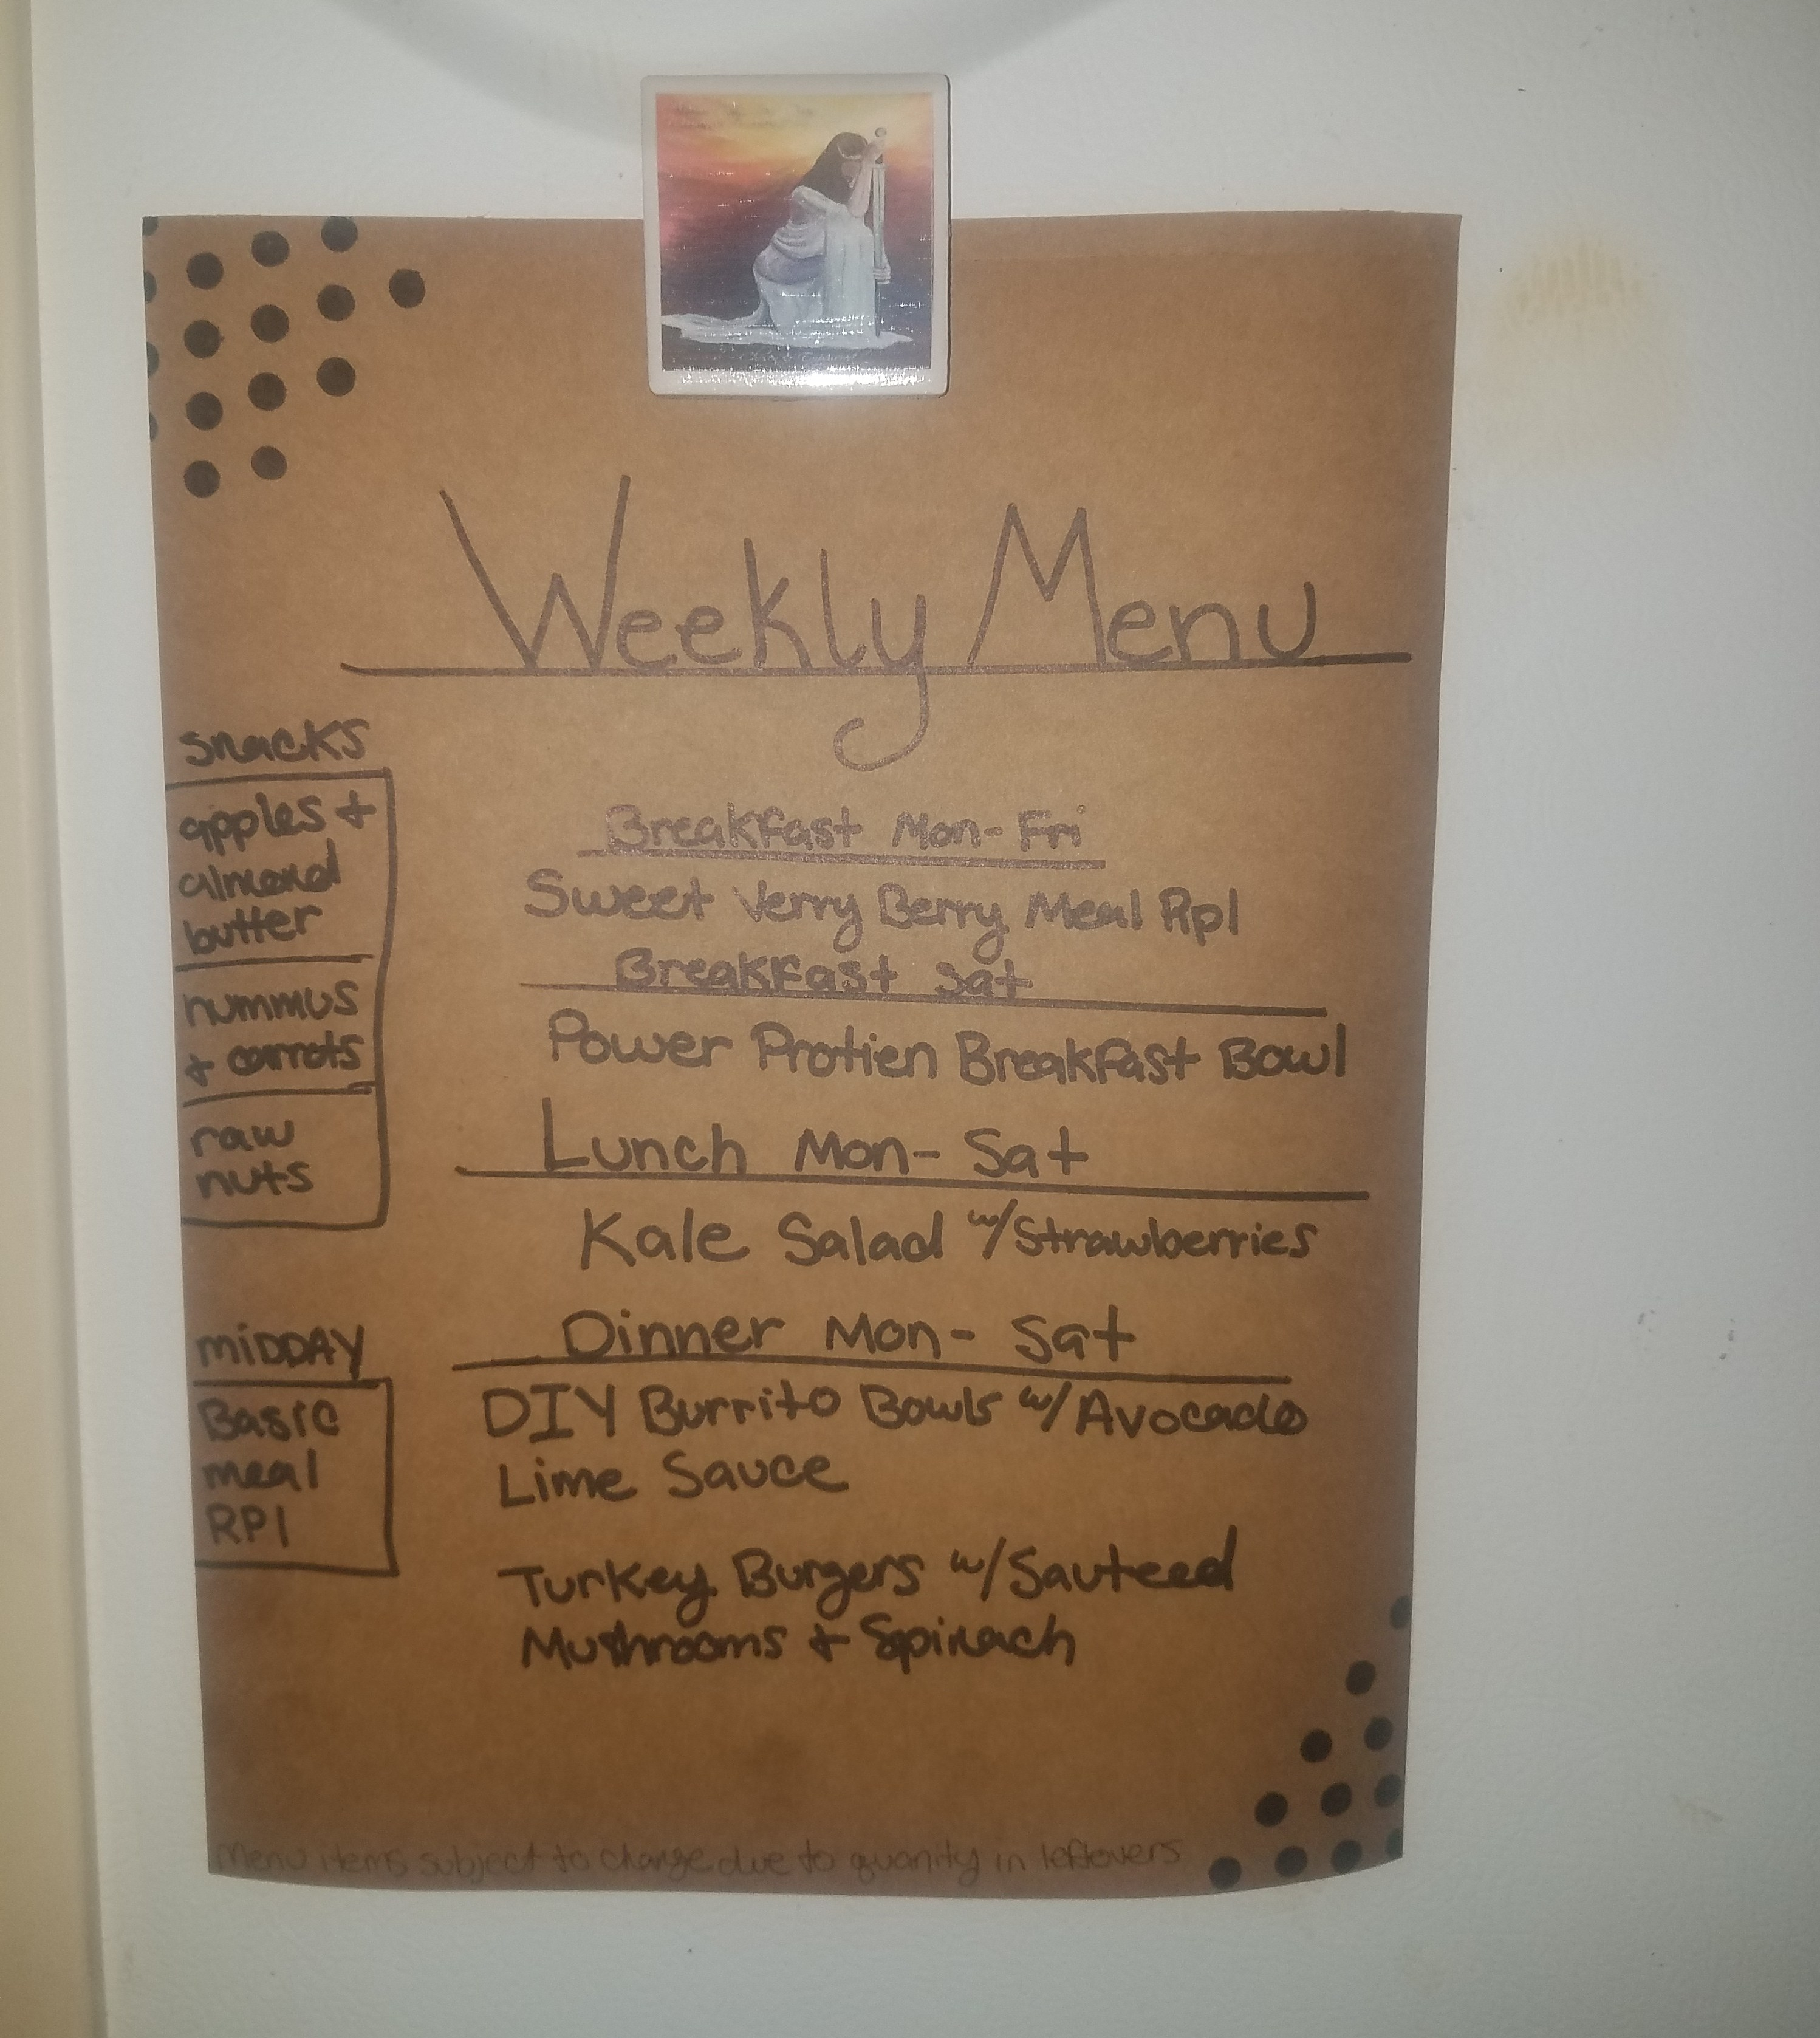 Weekly Menu
snacks
apples +
almond
butter
hummus
+ carrots
raw
nuts
MIDDAY
Basic
meal
RPl
Breakfast Mon-Fri
Sweet Verry Berry Meal Rpl
Breakfast Sat
Power Protien Breakfast Bowl
Lunch Mon- Sat
Kale Salad w/Strawberries
Dinner Mon- Sat
DIY Burrito Bowls w/Avocado
Lime Sauce
Turkey Burgers w/Sauteed
Mushrooms + Spinach
Menu items subject to change due to quanity in leftovers